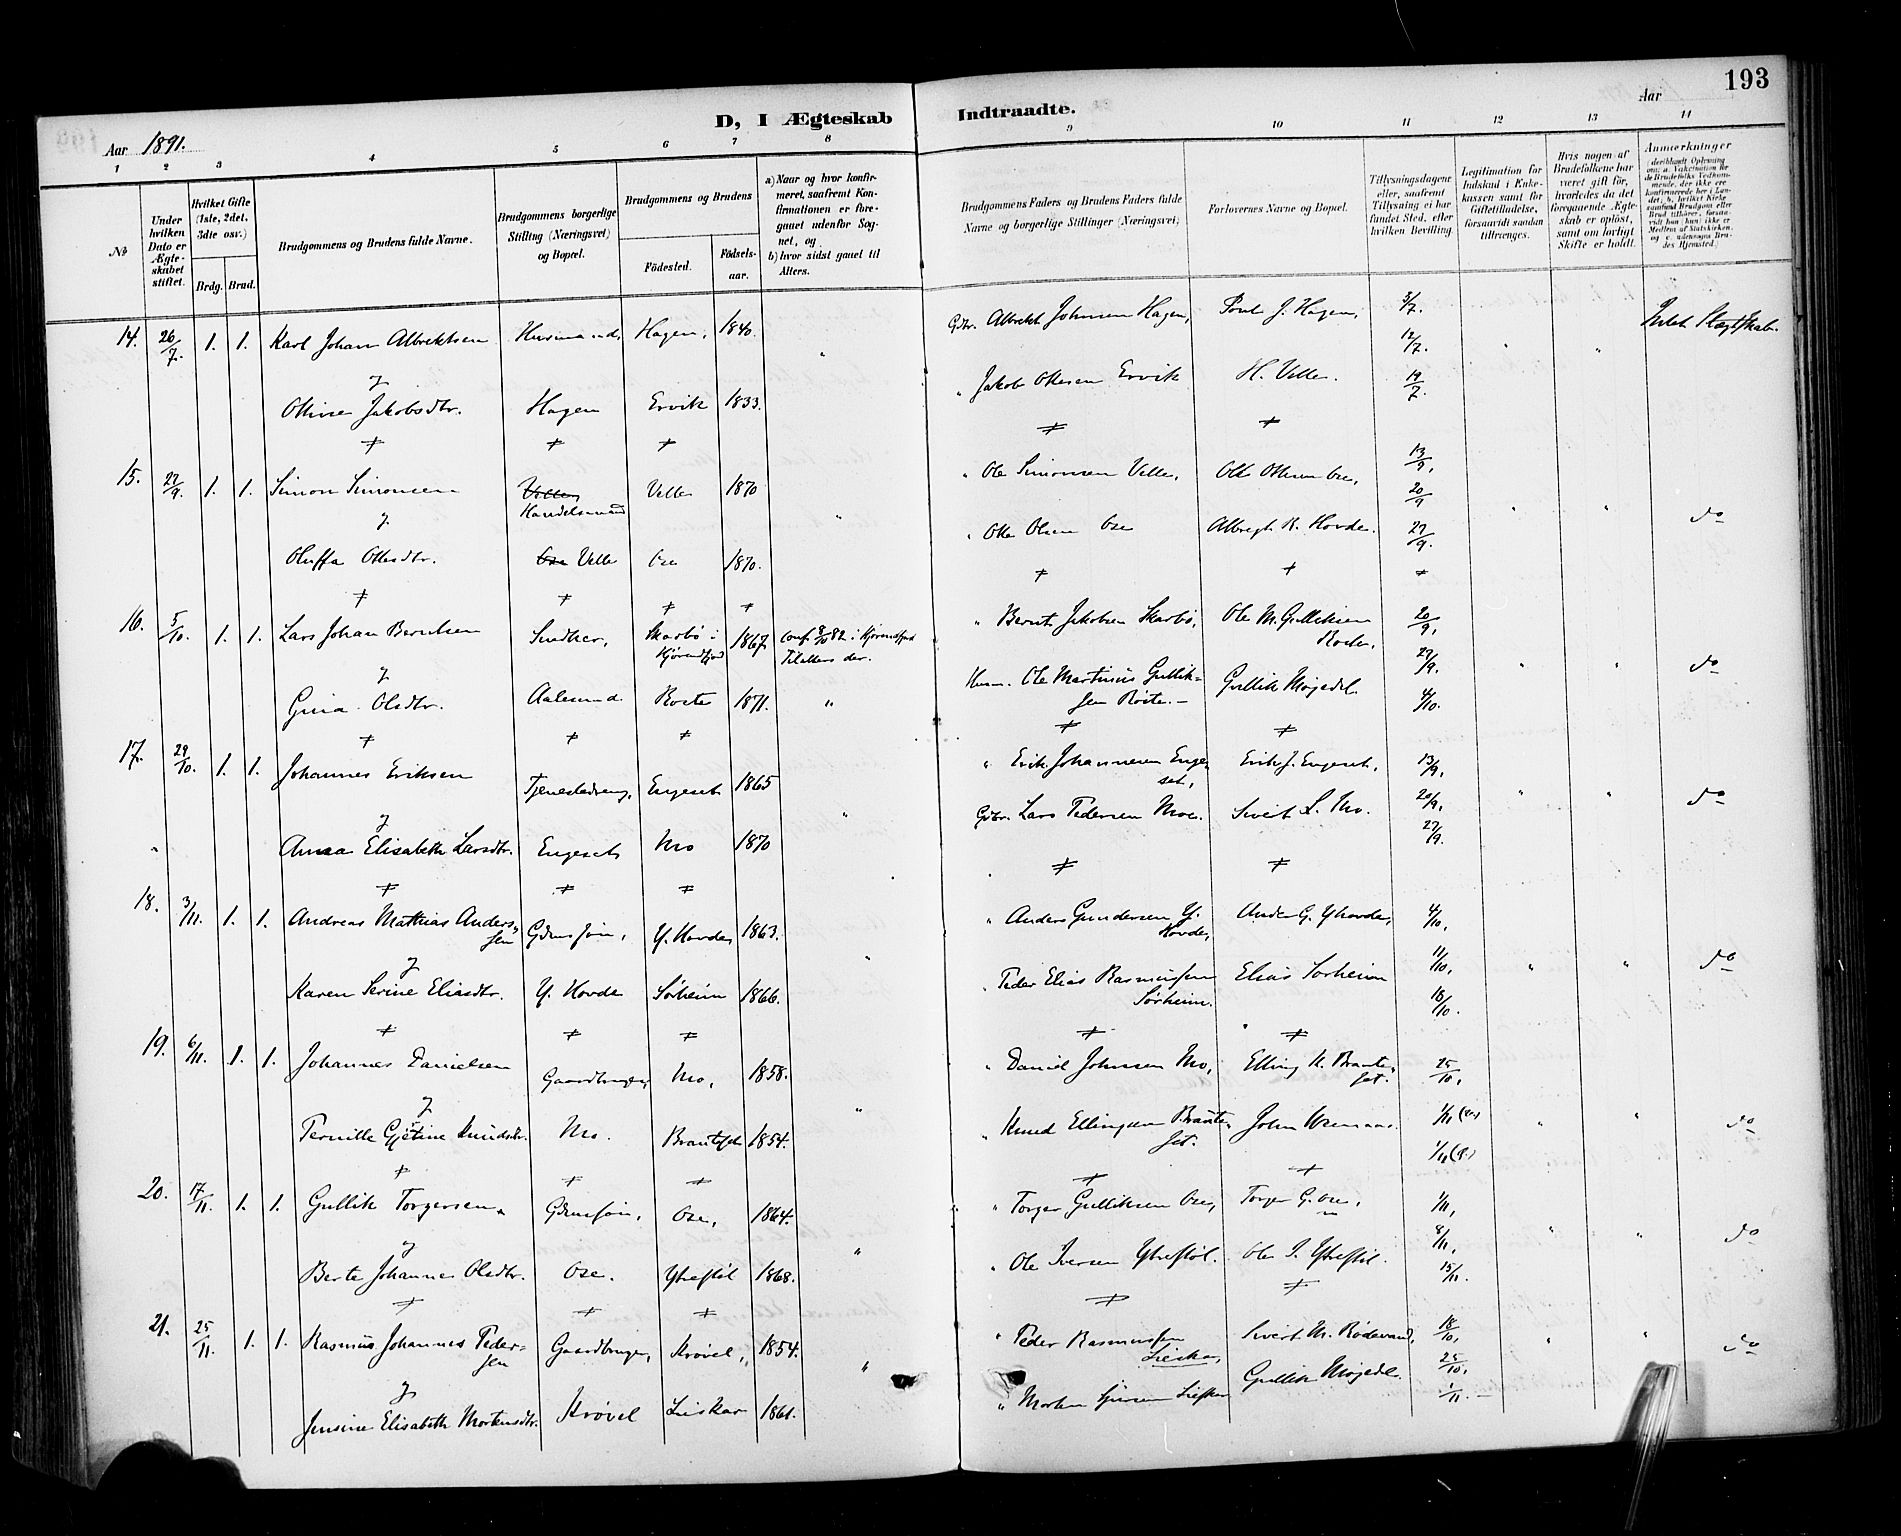 193
D, I Ægteskab Indtraadte.
Aar 1891.
Aar
1 2 3 4 5 6 7 8 9 10 11 12 13 14
No
Under hvilken Dato er Ægteskabet stiftet.
Hvilket Gifte (1ste, 2det, 3die osv.)
Brdg. Brud.
Brudgommens og Brudens fulde Navne.
Brudgommens borgerlige Stilling (Næringsvei) og Bopæl.
Brudgommens og Brudens
Födested.
Födsels-aar.
a) Naar og hvor konfirmeret, saafremt Konfirmationen er foregaaet udenfor Sognet, og
b) hvor sidst gaaet til Alters.
Brudgommens Faders og Brudens Faders fulde Navne og borgerlige Stillinger (Næringsvei)
Forlovernes Navne og Bopæl.
Tillysningsdagene eller, saafremt Tillysning ei har fundet Sted, efter hvilken Bevilling.
Legitimation for Indskud i Enkekassen samt for Giftetilladelse, forsaavidt saadan tiltrænges.
Hvis nogen af Brudefolkene har været gift för, hvorledes da det foregaaende Ægteskab er oplöst, samt om lovligt Skifte er holdt.
Anmærkninger
14. 26/7. 1. 1. Karl Johan Albrektsen Husmand, Hagen, 1840. Gdbr. Albrekt Johnsen Hagen, J. Hagen, 5/7.
12/7.
Oline Jakobsdtr. Hagen Ervik 1833. " Jakob Ottesen Ervik H. Velle. 19/7.
15. 27/9. 1. 1. Simon Simonsen Handelsmand Velle 1870 " Ole Simonsen Velle, Otte Ottesen Ose, 13/9.
20/9
Oluffa Ottesdtr. Velle Ose 1870. " Otte Olsen Ose Albregt K. Hovde. 27/9. do
16. 5/10. 1. 1. Lars Johan Berntsen Snedker, Skarbö i Kjörendfjord 1867. conf. 8/10 82 i Kjörendfjord Tilalters der. " Bernt Jakobsen Skarbö, Ole M. Gulliksen 20/9.
27/9.
Gina Olsdtr. Aalesund Roste 1871. " Husm. Ole Martinius Gulliksen Röste. Gullik Mojedel. 4/10. do
17. 29/10. 1. 1. Johannes Eriksen Tjenestedreng, Engeset 1865 " Erik Johannesen Engeset, Erik J. Engeset, 13/9.
20/9.
Anna Elisabeth Larsdtr. Engeset Mo 1870 Gdbr. Lars Pedersen Moe. Sivert L. Mo. 27/9. do
18. 3/11. 1. 1. Andreas Mathias Anderssen Y. Hovde 1863. " Anders Gundersen Y. Hovde, Anders G. Yhovde, 4/10.
11/10.
Karen Serine Eliasdtr. Y. Hovde Sörheim 1866. " Peder Elias Rasmussen Sörheim. Elias Sörheim 18/10. do
19. 6/11. 1. 1. Johannes Danielsen Gaardbruger, Mo, 1858. " Daniel Johnsen Mo, Elling K. Brauteset. 25/10.
1/11
Pernille Gjetine Knudsdtr. Mo. Brautset 1854. " Knud Ellingsen Brauteset. John 1/11 do
20. 17/11. 1. 1. Gullik Torgersen Ose, 1864. " Torger Gulliksen Ose, Torger G. Ose, 1/11,
8/11,
Berte Johanne Olsdtr. Ose. Ytrestöl 1868. " Ole Iversen Ytrestöl. Ole I. Ytrestöl. 15/11. do
21. 25/11. 1. 1. Rasmus Johannes Pedersen Gaardbruger, Krövel, 1854. " Peder Rasmussen Lieskar, Sivert M. Rödevand, 18/10,
25/10.
Jensine Elisabeth Mortensdtr. Krövel Lieskar 1861. " Morten Lieskar Gullik Mojedel. 1/11. do